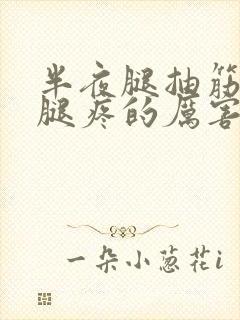 半夜腿抽筋
腿疼的厲害
一朵小葱花i